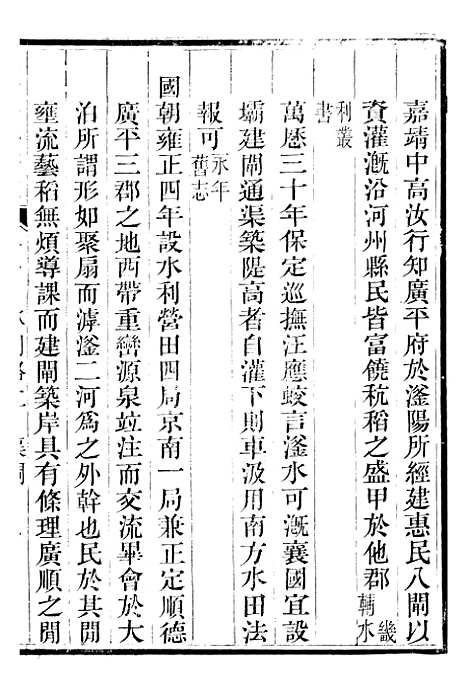 嘉靖中高汝行知廣平府於滏陽所經建惠民八閘以
資灌漑沿河州縣民皆富饒秔稻之盛甲於他郡畿輔水
利叢書
萬歷三十年保定巡撫汪應蛟言滏水可漑襄國宜設
壩建閘通渠築隄高者自灌下則車汲用南方水田法
報可永年舊志
國朝雍正四年設水利營田四局京南一局兼正定順德
廣平三郡之地西帶重巒源泉竝注而交流畢會於大
泊所謂形如聚扇而滹滏二河爲之外幹也民於其閒
雍流藝稻無煩導課而建閘築岸具有條理廣順之閒